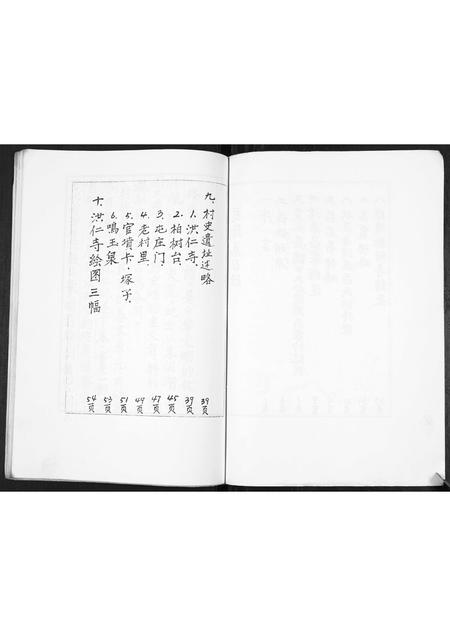 九、村史遺址述略 39页
1.洪仁寺、 39页
2.柏树台、 45页
3.屯庄门、 47页
4.老村里、 49页
5.官墳卡、塚子、 51页
6.鳴玉泉 53页
十、洪仁寺絵图三幅 54页